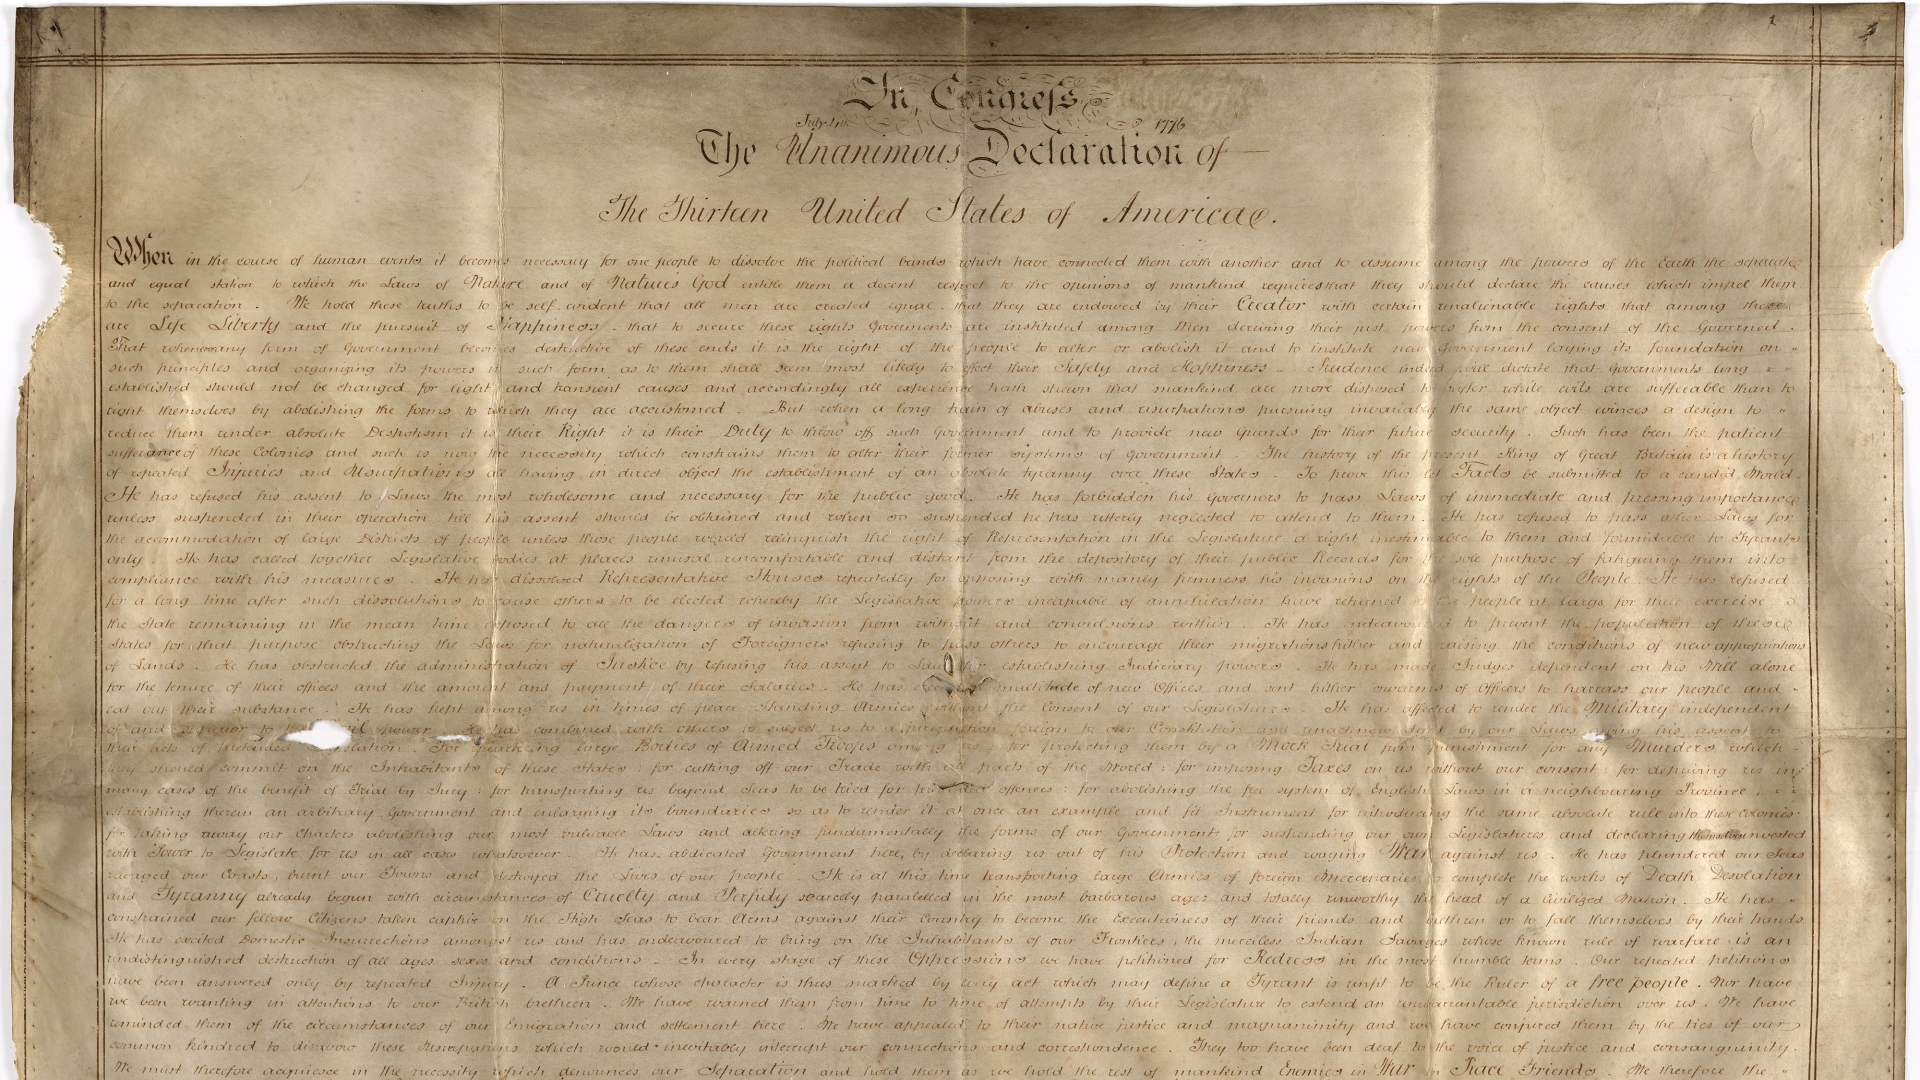 In Congress
July 4th 1776
The Unanimous Declaration of
The Thirteen United States of America.
When in the course of human events it becomes necessary for one people to dissolve the political bands which have connected them with another and to assume among the powers of the Earth the separate
and equal station to which the Laws of Nature and of Natures God entitle them a decent respect to the opinions of mankind requires that they should declare the causes which impel them
to the separation. We hold these truths to be self evident that all men are created equal that they are endowed by their Creator with certain unalienable rights that among these
are Life Liberty and the pursuit of Happiness. that to secure these rights Governments are instituted among Men deriving their just powers from the consent of the Governed.
That whenever any form of Government becomes destructive of these ends it is the right of the people to alter or abolish it and to institute new Government laying its foundation on
such principles and organizing its powers in such form as to them shall seem most likely to effect their Safety and Happiness. Prudence indeed will dictate that Governments long
established should not be changed for light and transent causes and accordingly all experience hath shewn that mankind are more disposed to suffer while evils are sufferable than to
right themselves by abolishing the forms to which they are accustomed. But when a long train of abuses and usurpations pursuing invariably the same object evinces a design to
reduce them under absolute Despotism it is their Right it is their Duty to throw off such Government and to provide new Guards for their future security. Such has been the patient
sufferance of these Colonies and such is now the necessity which constrains them to alter their former systems of Government. The history of the present King of Great Britain is a history
of repeated Injuries and Usurpations all having in direct object the establishment of an absolute tyranny over these States. To prove this let Facts be submitted to a candid World.
He has refused his assent to Laws the most wholesome and necessary for the public good. He has forbidden his Governors to pass Laws of immediate and pressing importance
unless suspended in their operation till his assent should be obtained and when so suspended he has utterly neglected to attend to them. He has refused to pass other Laws for
the accommodation of large Districts of people unless those people would relinquish the right of Representation in the Legislature a right inestimable to them and formidable to Tyrants
only. He has called together Legislative bodies at places unusual uncomfortable and distant from the depository of their public Records for the sole purpose of fatiguing them into
compliance with his measures. He has dissolved Representative Houses repeatedly for opposing with manly firmness his invasions on the rights of the People. He has refused
for a long time after such dissolutions to cause others to be elected whereby the Legislative powers incapable of annihilation have returned to the people at large for their exercise
the State remaining in the mean time exposed to all the dangers of invasion from without and convulsions within. He has endeavoured to prevent the population of these
States for that purpose obstructing the Laws for naturalization of Foreigners refusing to pass others to encourage their migrations hither and raising the conditions of new appropriations
of Lands. He has obstructed the administration of Justice by refusing his assent to Laws for establishing Judiciary powers. He has made Judges dependent on his Will alone
for the tenure of their offices and the amount and payment of their Salaries. He has multitude of new Offices and sent hither swarms of Officers to harrass our people and
eat out their substance. He has kept among us in times of peace Standing Armies without the Consent of our Legislatures. He has affected to render the Military independent
of and superior to the civil power. He has combined with others to subject us to a jurisdiction foreign to our Constitution and unacknowledged by our Laws giving his assent to
their acts of pretended Legislation. For quartering large Bodies of Armed Troops among us. for protecting them by a Mock Trial from punishment for any Murders which
they should commit on the Inhabitants of these States: for cutting off our Trade with all parts of the World: for imposing Taxes on us without our consent: for depriving us in
many cases of the benefit of Trial by Jury: for transporting us beyond Seas to be tried for offences: for abolishing the free system of English Laws in a neighbouring Province,
establishing therein an arbitrary Government and enlarging its boundaries so as to render it at once an example and fit Instrument for introducing the same absolute rule into these Colonies
for taking away our Charters abolishing our most valuable Laws and altering fundamentally the forms of our Government for suspending our own Legislatures and declaring themselves invested
with Power to Legislate for us in all cases whatsoever. He has abdicated Government here, by declaring us out of his Protection and waging War against us. He has plundered our Seas
ravaged our Coasts, burnt our Towns and destroyed the Lives of our people. He is at this time transporting large Armies of foreign Mercenaries to complete the works of Death Desolation
and Tyranny already begun with circumstances of Cruelty and Perfidy scarcely paralelled in the most barbarous ages and totally unworthy the head of a Civilized Nation. He has
constrained our fellow Citizens taken captive on the High Seas to bear Arms against their Country to become the Executioners of their friends and brethren or to fall themselves by their hands.
He has excited Domestic Insurrections amongst us and has endeavoured to bring on the Inhabitants of our Frontiers, the merciless Indian Savages whose known rule of warfare is an
undistinguished destruction of all ages sexes and conditions. In every stage of these Oppressions we have petitioned for Redress in the most humble terms. Our repeated petitions
have been answered only by repeated Injury. A Prince whose character is thus marked by every act which may define a Tyrant is unfit to be the Ruler of a free people. Nor have
we been wanting in attentions to our British brethren. We have warned them from time to time of attempts by their Legislature to extend an unwarrantable jurisdiction over us. We have
reminded them of the circumstances of our Emigration and settlement here. We have appealed to their native justice and magnanimity and we have conjured them by the ties of our
common kindred to disavow these Usurpations which would inevitably interrupt our connections and correspondence. They too have been deaf to the voice of justice and consanguinity.
We must therefore acquiesce in the necessity which denounces our Separation and hold them as we hold the rest of mankind Enemies in War in Peace Friends. We therefore the